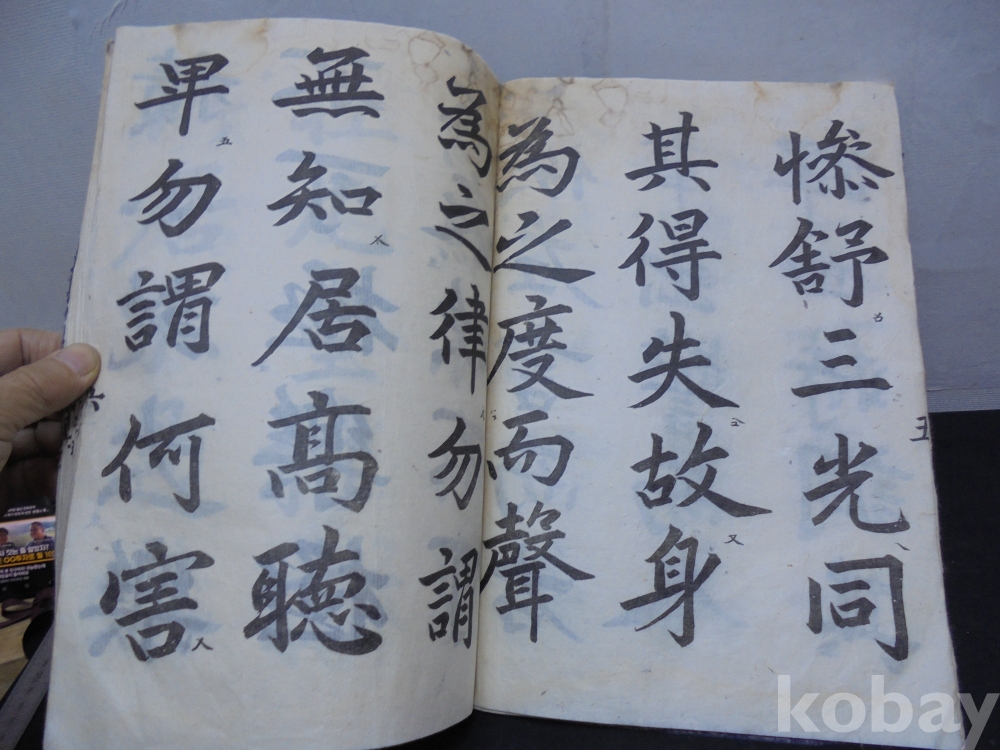 慘舒三光同
其得失故身
為之度而聲
為之律勿謂
無知居髙聽
卑勿謂何害
kobay